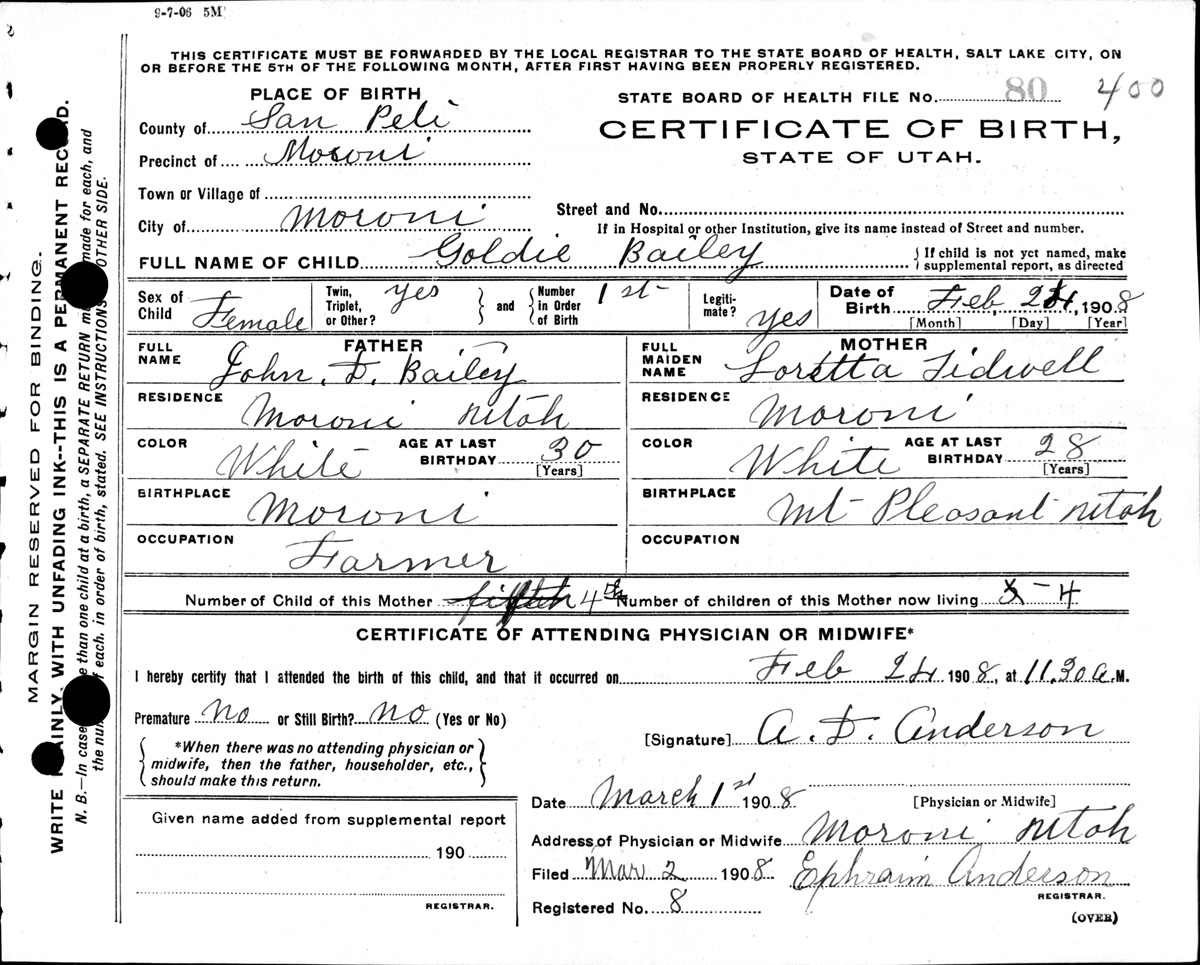 9-7-06 5M
THIS CERTIFICATE MUST BE FORWARDED BY THE LOCAL REGISTRAR TO THE STATE BOARD OF HEALTH, SALT LAKE CITY, ON
OR BEFORE THE 5TH OF THE FOLLOWING MONTH, AFTER FIRST HAVING BEEN PROPERLY REGISTERED.
PLACE OF BIRTH
STATE BOARD OF HEALTH FILE No. 80 400
County of San Peli
CERTIFICATE OF BIRTH,
Precinct of Moroni
STATE OF UTAH.
Town or Village of
Street and No.
City of Moroni
If in Hospital or other Institution, give its name instead of Street and number.
FULL NAME OF CHILD Goldie Bailey
If child is not yet named, make
supplemental report, as directed
Sex of Child Female
Twin, Triplet, or Other? yes
and
Number in Order of Birth 1st
Legiti-mate? yes
Date of Birth Feb 24, 1908
[Month] [Day] [Year]
FATHER
FULL NAME John. D. Bailey
MOTHER
FULL MAIDEN NAME Loretta Tidwell
RESIDENCE Moroni Utah
RESIDENCE Moroni
COLOR White
AGE AT LAST BIRTHDAY 30
[Years]
COLOR White
AGE AT LAST BIRTHDAY 28
[Years]
BIRTHPLACE Moroni
BIRTHPLACE Mt Pleasant Utah
OCCUPATION Farmer
OCCUPATION
Number of Child of this Mother fifteh 4th Number of children of this Mother now living 5 - 4
CERTIFICATE OF ATTENDING PHYSICIAN OR MIDWIFE*
I hereby certify that I attended the birth of this child, and that it occurred on Feb 24 1908, at 11.30 a.M.
Premature no or Still Birth? no (Yes or No)
[Signature] A. D. Anderson
*When there was no attending physician or
midwife, then the father, householder, etc.,
should make this return.
Date March 1st 1908
[Physician or Midwife]
Given name added from supplemental report
Address of Physician or Midwife Moroni Utah
190
Filed Mar 2 1908 Ephraim Anderson
REGISTRAR.
REGISTRAR.
Registered No. 8
(OVER)
MARGIN RESERVED FOR BINDING.
WRITE PLAINLY, WITH UNFADING INK--THIS IS A PERMANENT RECORD.
N. B.—In case more than one child at a birth, a SEPARATE RETURN made for each, and
the number of each, in order of birth, stated. SEE INSTRUCTIONS OTHER SIDE.